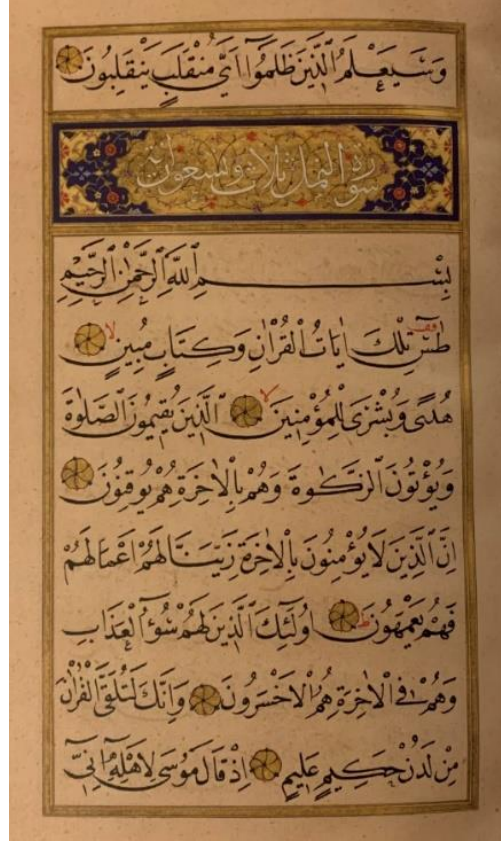 وَسَيَعْلَمُ الَّذِينَ ظَلَمُوا اَيَّ مُنْقَلَبٍ يَنْقَلِبُونَ
سورة النمل ثلاث وتسعون اية
بِسْمِ اللّٰهِ الرَّحْمٰنِ الرَّحِيمِ
طٰسٓ تِلْكَ اٰيَاتُ الْقُرْاٰنِ وَكِتَابٍ مُبِينٍ لا
هُدًى وَبُشْرٰى لِلْمُؤْمِنِينَ لا اَلَّذِينَ يُقِيمُونَ الصَّلٰوةَ
وَيُؤْتُونَ الزَّكٰوةَ وَهُمْ بِالْاٰخِرَةِ هُمْ يُوقِنُونَ
اِنَّ الَّذِينَ لَا يُؤْمِنُونَ بِالْاٰخِرَةِ زَيَّنَّا لَهُمْ اَعْمَالَهُمْ
فَهُمْ يَعْمَهُونَ ط اُولٰئِكَ الَّذِينَ لَهُمْ سُوٓءُ الْعَذَابِ
وَهُمْ فِي الْاٰخِرَةِ هُمُ الْاَخْسَرُونَ وَاِنَّكَ لَتُلَقَّى الْقُرْاٰنَ
مِنْ لَدُنْ حَكِيمٍ عَلِيمٍ اِذْ قَالَ مُوسٰى لِاَهْلِهِٓ اِنِّيٓ